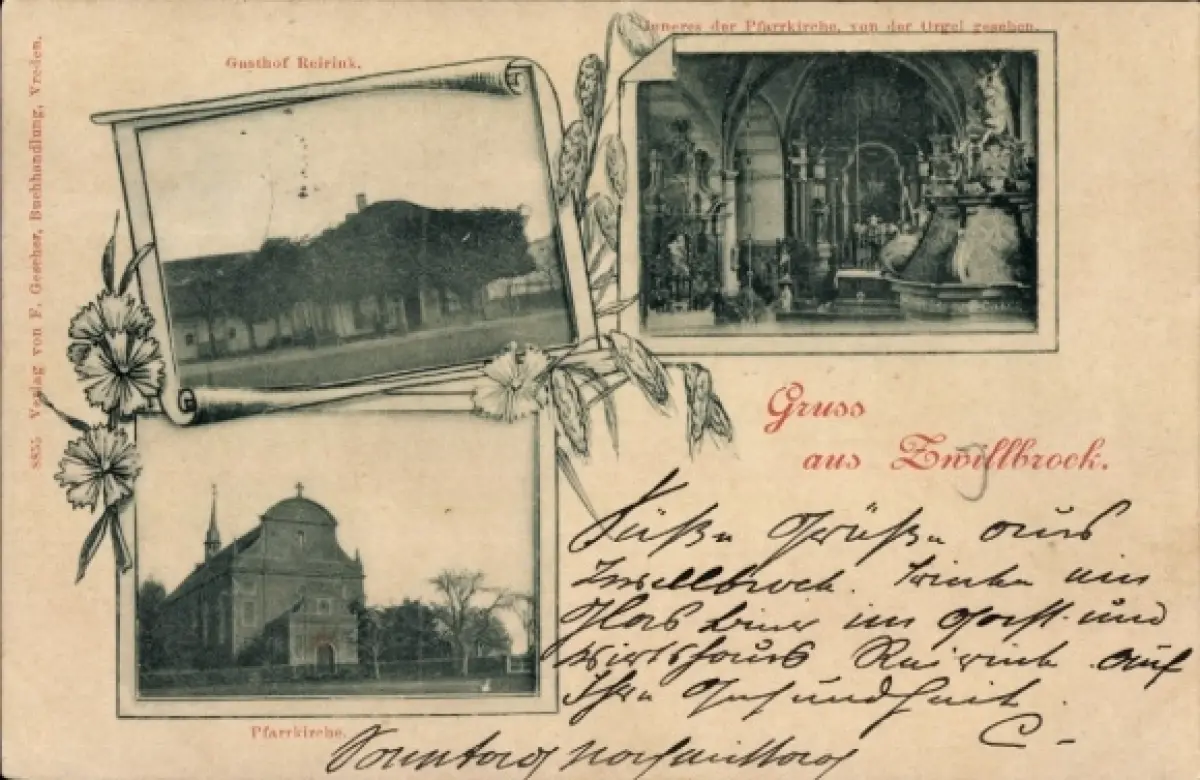 Gasthof Reirink.
Inneres der Pfarrkirche, von der Orgel gesehen.
8855 Verlag von F. Gescher, Buchhandlung, Vreden.
Gruss
aus Zwillbrock.
Süße Grüße aus
Zwillbrock. Trinke ein
Glas Bier im Gast- und
Wirtshaus Reirink auf
Ihre Gesundheit.
C.-
Pfarrkirche.
Sonntag nachmittag